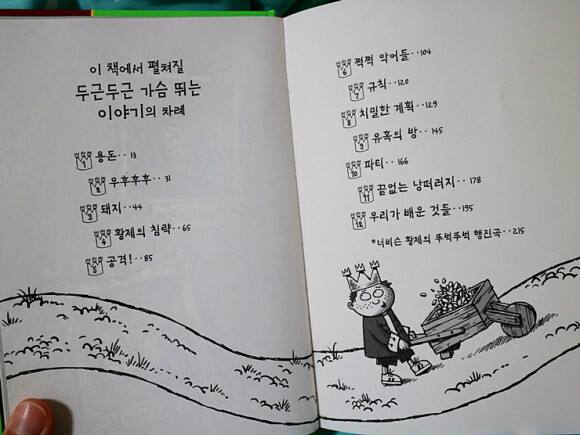 이 책에서 펼쳐질
두근두근 가슴 뛰는
이야기의 차례
1 용돈··13
2 우후후후··31
3 돼지··44
4 황제의 침략··65
5 공격!··85
6 쩍쩍 악어들··104
7 규칙··120
8 치밀한 계획··129
9 유혹의 방··145
10 파티··166
11 끝없는 낭떠러지··178
12 우리가 배운 것들··195
*너비슨 황제의 뚜벅뚜벅 행진곡··215